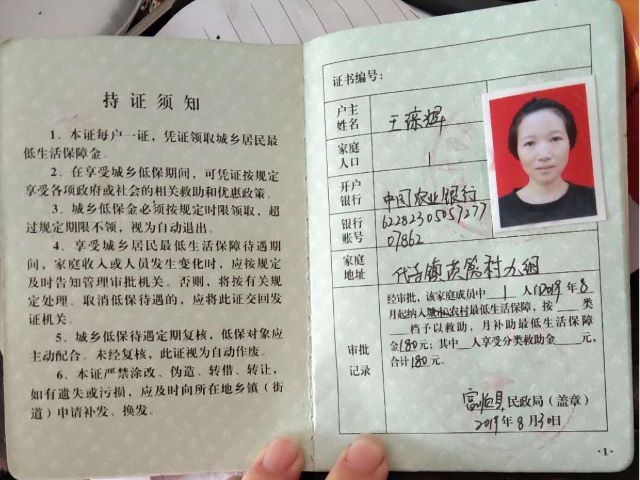 持证须知
1、本证每户一证，凭证领取城乡居民最
低生活保障金。
2、在享受城乡低保期间，可凭证按规定
享受各项政府或社会的相关救助和优惠政策。
3、城乡低保金必须按规定时限领取，超
过规定期限不领，视为自动退出。
4、享受城乡居民最低生活保障待遇期
间，家庭收入或人员发生变化时，应按规定
及时告知管理审批机关。否则，将按有关规
定处理。取消低保待遇的，应将此证交回发
证机关。
5、城乡低保待遇定期复核，低保对象应
主动配合。未经复核，此证视为自动作废。
6、本证严禁涂改、伪造、转借、转让，
如有遗失或污损，应及时向所在地乡镇（街
道）申请补发、换发。
证书编号：
户主
姓名
王琼辉
家庭
人口
1
开户
银行
中国农业银行
银行
账号
6228230505727​7
07862
家庭
地址
代寺镇 村九组
审批
记录
经审批，该家庭成员中 1 人自2019年8
月起纳入城市\农村最低生活保障，按 类
档予以救助，月补助最低生活保障
金180元；其中 人享受分类救助金 元，
合计180元。
富顺县民政局（盖章）
2019年8月30日
·1·